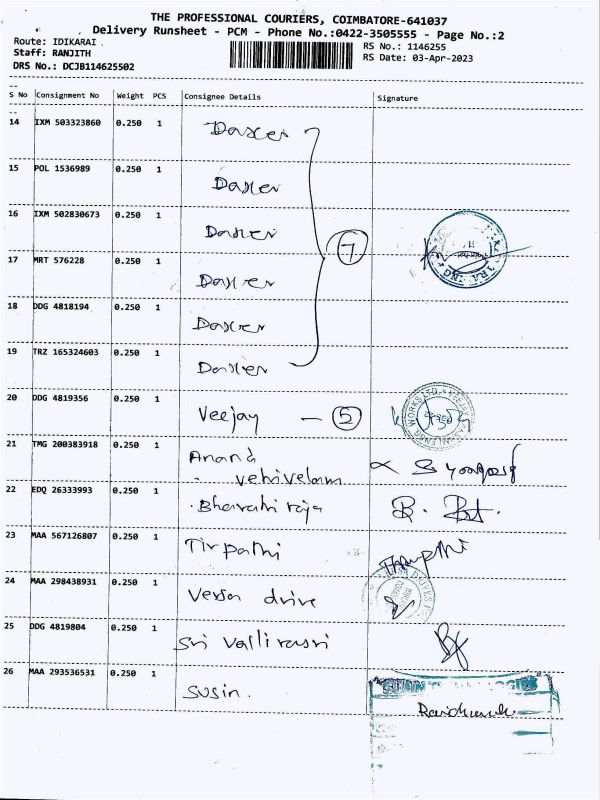 THE PROFESSIONAL COURIERS, COIMBATORE-641037
Delivery Runsheet - PCM - Phone No.:0422-3505555 - Page No.:2
Route: IDIKARAI
Staff: RANJITH
DRS No.: DCJB114625502
RS No.: 1146255
RS Date: 03-Apr-2023
S No Consignment No Weight PCS Consignee Details Signature
14 IXM 503323860 0.250 1 Daxer
15 POL 1536989 0.250 1 Daxer
16 IXM 502830673 0.250 1 Daxer
7
17 MRT 576228 0.250 1 Daxer
18 DDG 4818194 0.250 1 Daxer
19 TRZ 165324603 0.250 1 Daxer
20 DDG 4819356 0.250 1 Veejay - 5
21 TMG 200383918 0.250 1 Anand
vetrivelam
22 EDQ 26333993 0.250 1 Bharathi raja
23 MAA 567126807 0.250 1 Tirpathi
24 MAA 298438931 0.250 1 Versa drive
25 DDG 4819804 0.250 1 Sri Valli
26 MAA 293536531 0.250 1 Susin.